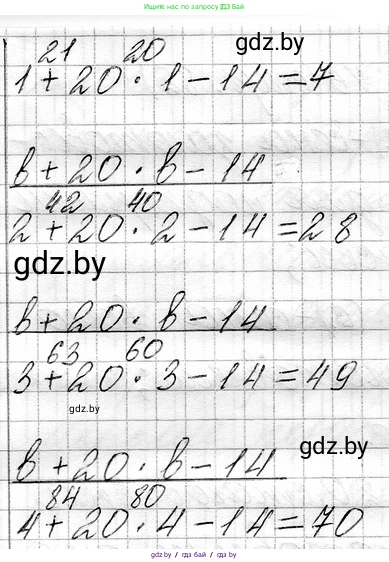 Ищите нас по запросу - ГДЗ Бай
21 20
gdz.by
1 + 20 · 1 - 14 = 7
в + 20 · в - 14
42 40
2 + 20 · 2 - 14 = 28
gdz.by
в + 20 · в - 14
63 60
3 + 20 · 3 - 14 = 49
gdz.by
gdz.by
в + 20 · в - 14
84 80
4 + 20 · 4 - 14 = 70
gdz.by / гдз бай / gdz.by